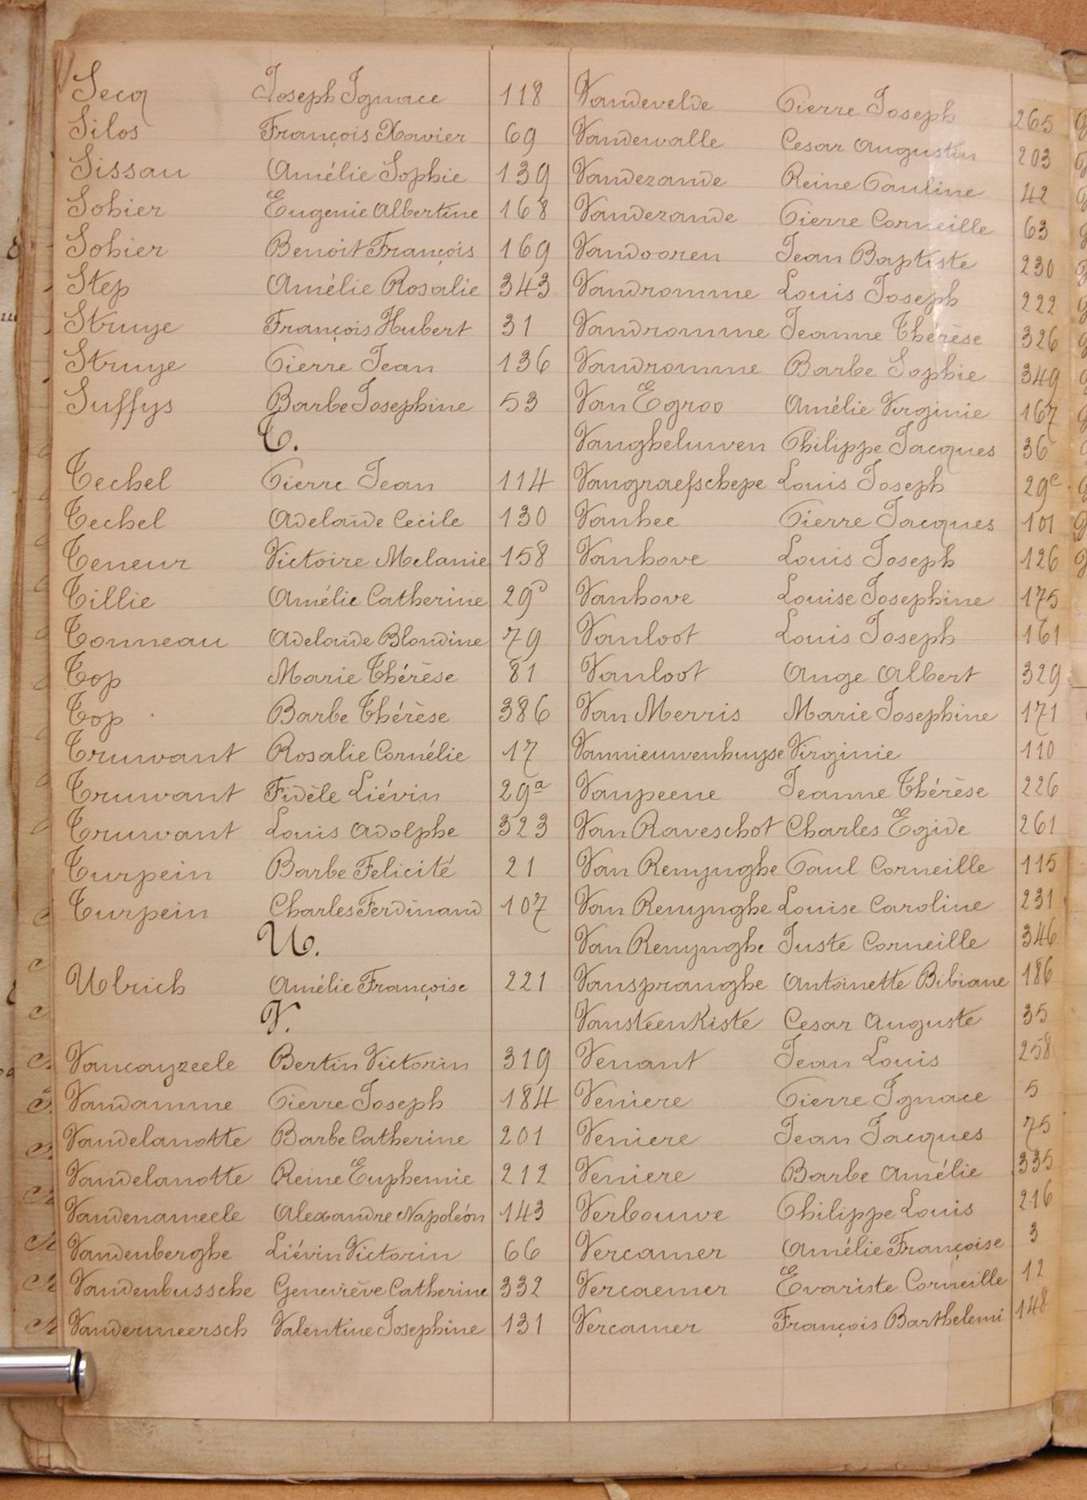 Secq Joseph Ignace 118
Silos François Xavier 69
Sissau Amélie Sophie 139
Sohier Eugenie Albertine 168
Sohier Benoit François 169
Step Amélie Rosalie 343
Struye François Hubert 31
Struye Pierre Jean 136
Suffys Barbe Josephine 53
T.
Techel Pierre Jean 114
Techel Adelaïde Cecile 130
Teneur Victoire Melanie 158
Tillie Amélie Catherine 29
Tonneau Adelaïde Blondine 79
Top Marie Thérèse 81
Top Barbe Thérèse 386
Truwant Rosalie Cornélie 17
Truwant Fidèle Liévin 29a
Truwant Louis Adolphe 323
Turpein Barbe Felicité 21
Turpein Charles Ferdinand 107
U.
Ulrich Amélie Françoise 221
V.
Vancayzeele Bertin Victorin 319
Vandamme Pierre Joseph 184
Vandelanotte Barbe Catherine 201
Vandelanotte Reine Euphemie 212
Vandenameele Alexandre Napoléon 143
Vandenberghe Liévin Victorin 66
Vandenbussche Geneviève Catherine 332
Vandermeersch Valentine Josephine 131
Vandevelde Pierre Joseph 265
Vandewalle Cesar Augustin 203
Vandezande Reine Pauline 42
Vandezande Pierre Corneille 63
Vandooren Jean Baptiste 230
Vandromme Louis Joseph 222
Vandromme Jeanne Thérèse 326
Vandromme Barbe Sophie 349
Van Egroo Amélie Virginie 167
Vangheluwen Philippe Jacques 36
Vangraefschepe Louis Joseph 29c
Vanhee Pierre Jacques 101
Vanhove Louis Joseph 126
Vanhove Louise Josephine 175
Vanloot Louis Joseph 161
Vanloot Ange Albert 329
Van Merris Marie Josephine 171
Vannieuwenhuyse Virginie 110
Vanpeene Jeanne Thérèse 226
Van Raveschot Charles Egide 261
Van Renynghe Paul Corneille 115
Van Renynghe Louise Caroline 231
Van Renynghe Juste Corneille 346
Vanspranghe Antoinette Bibiane 186
Vansteenkiste Cesar Auguste 35
Venant Jean Louis 258
Veniere Pierre Ignace 5
Veniere Jean Jacques 75
Veniere Barbe Amélie 335
Verbouwe Philippe Louis 216
Vercamer Amélie Françoise 3
Vercaemer Evariste Corneille 12
Vercamer François Barthelemi 148